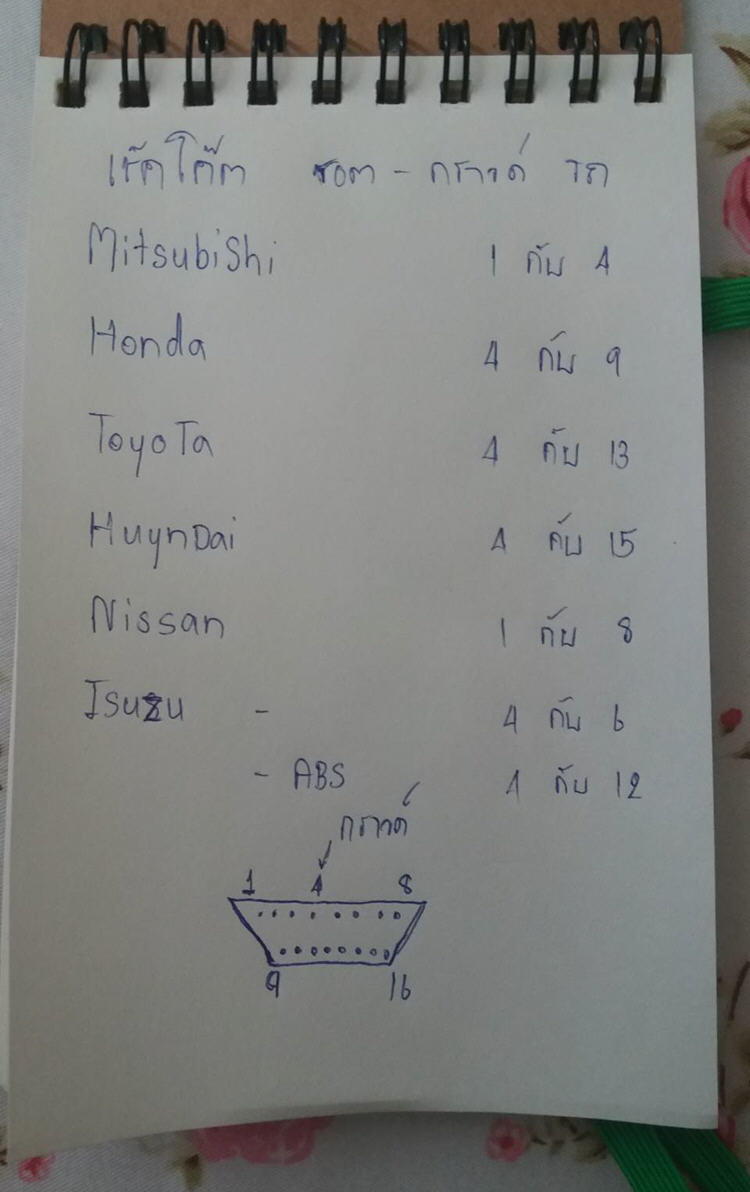 เช๊คโค๊ต ชอต - กราวด์ รถ
Mitsubishi 1 กับ 4
Honda 4 กับ 9
Toyota 4 กับ 13
HuynDai 4 กับ 15
Nissan 1 กับ 8
Isuzu - 4 กับ 6
- ABS 4 กับ 12
กราวด์
1 4 8
9 16